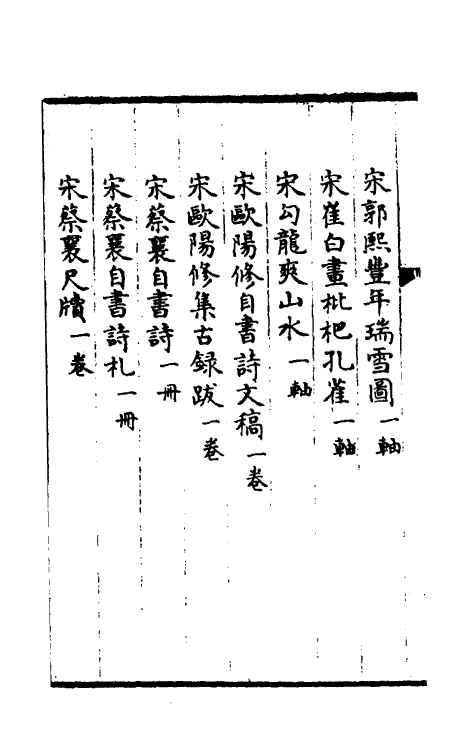 宋郭熙豐年瑞雪圖一軸
宋崔白畫枇杷孔雀一軸
宋勾龍爽山水一軸
宋歐陽修自書詩文稿一卷
宋歐陽修集古録跋一卷
宋蔡襄自書詩一冊
宋蔡襄自書詩札一冊
宋蔡襄尺牘一卷